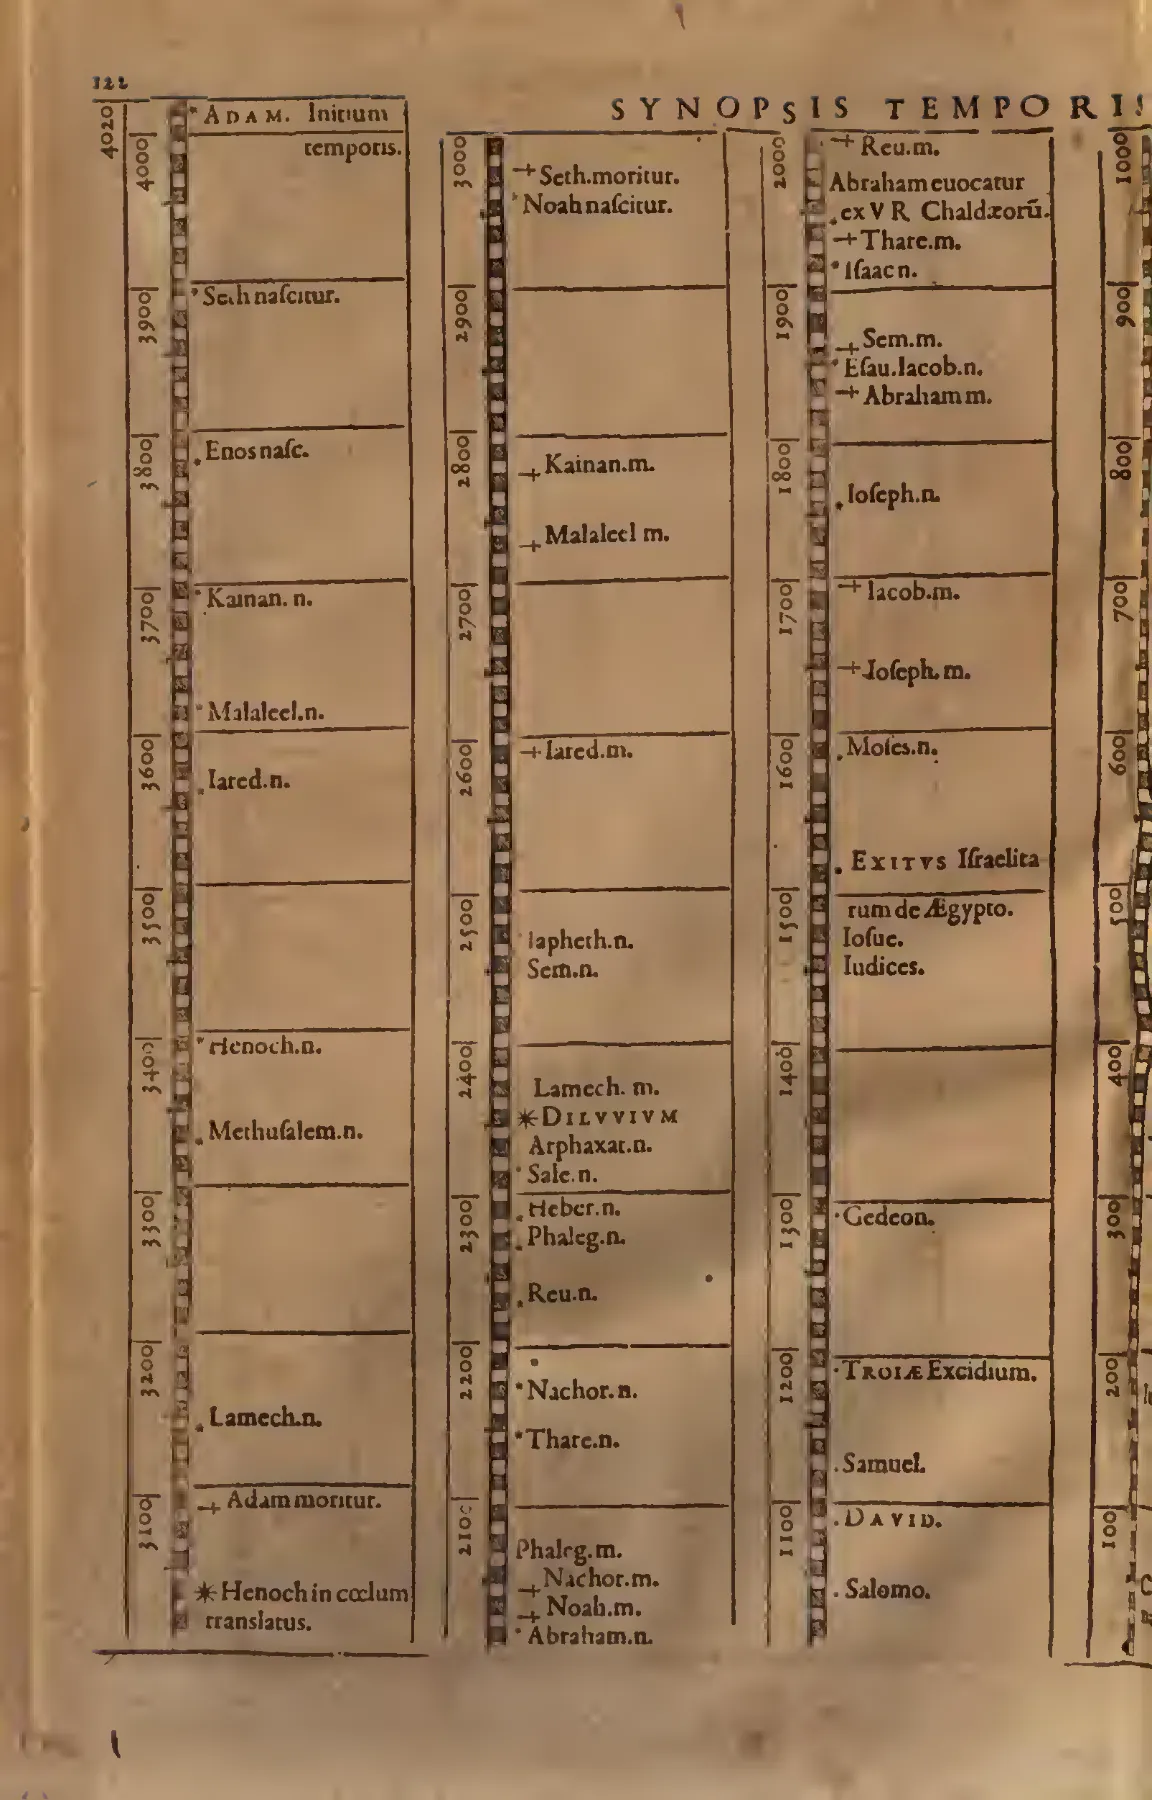 122
SYNOPSIS TEMPORIS
4020
ADAM. Initium
4000
temporis.
3900
Seth naſcitur.
3800
Enos naſc.
3700
Kainan. n.
Malaleel.n.
3600
Iared.n.
3500
3400
Henoch.n.
Methuſalem.n.
3300
3200
Lamech.n.
3100
Adam moritur.
Henoch in cœlum
translatus.
3000
Seth.moritur.
Noah naſcitur.
2900
2800
Kainan.m.
Malaleel m.
2700
2600
Iared.m.
2500
Iapheth.n.
Sem.n.
2400
Lamech. m.
DILVVIVM
Arphaxat.n.
Sale.n.
2300
Heber.n.
Phaleg.n.
Reu.n.
2200
Nachor.n.
Thare.n.
2100
Phaleg.m.
Nachor.m.
Noah.m.
Abraham.n.
2000
Reu.m.
Abraham euocatur
ex VR Chaldæorū.
Thare.m.
Iſaac n.
1900
Sem.m.
Eſau.Iacob.n.
Abraham m.
1800
Ioſeph.n.
1700
Iacob.m.
Ioſeph.m.
1600
Moſes.n.
EXITVS Iſraelita
1500
rum de Ægypto.
Ioſue.
Iudices.
1400
1300
Gedeon.
1200
TROIÆ Excidium.
Samuel.
1100
DAVID.
Salomo.
1000
900
800
700
600
500
400
300
200
100